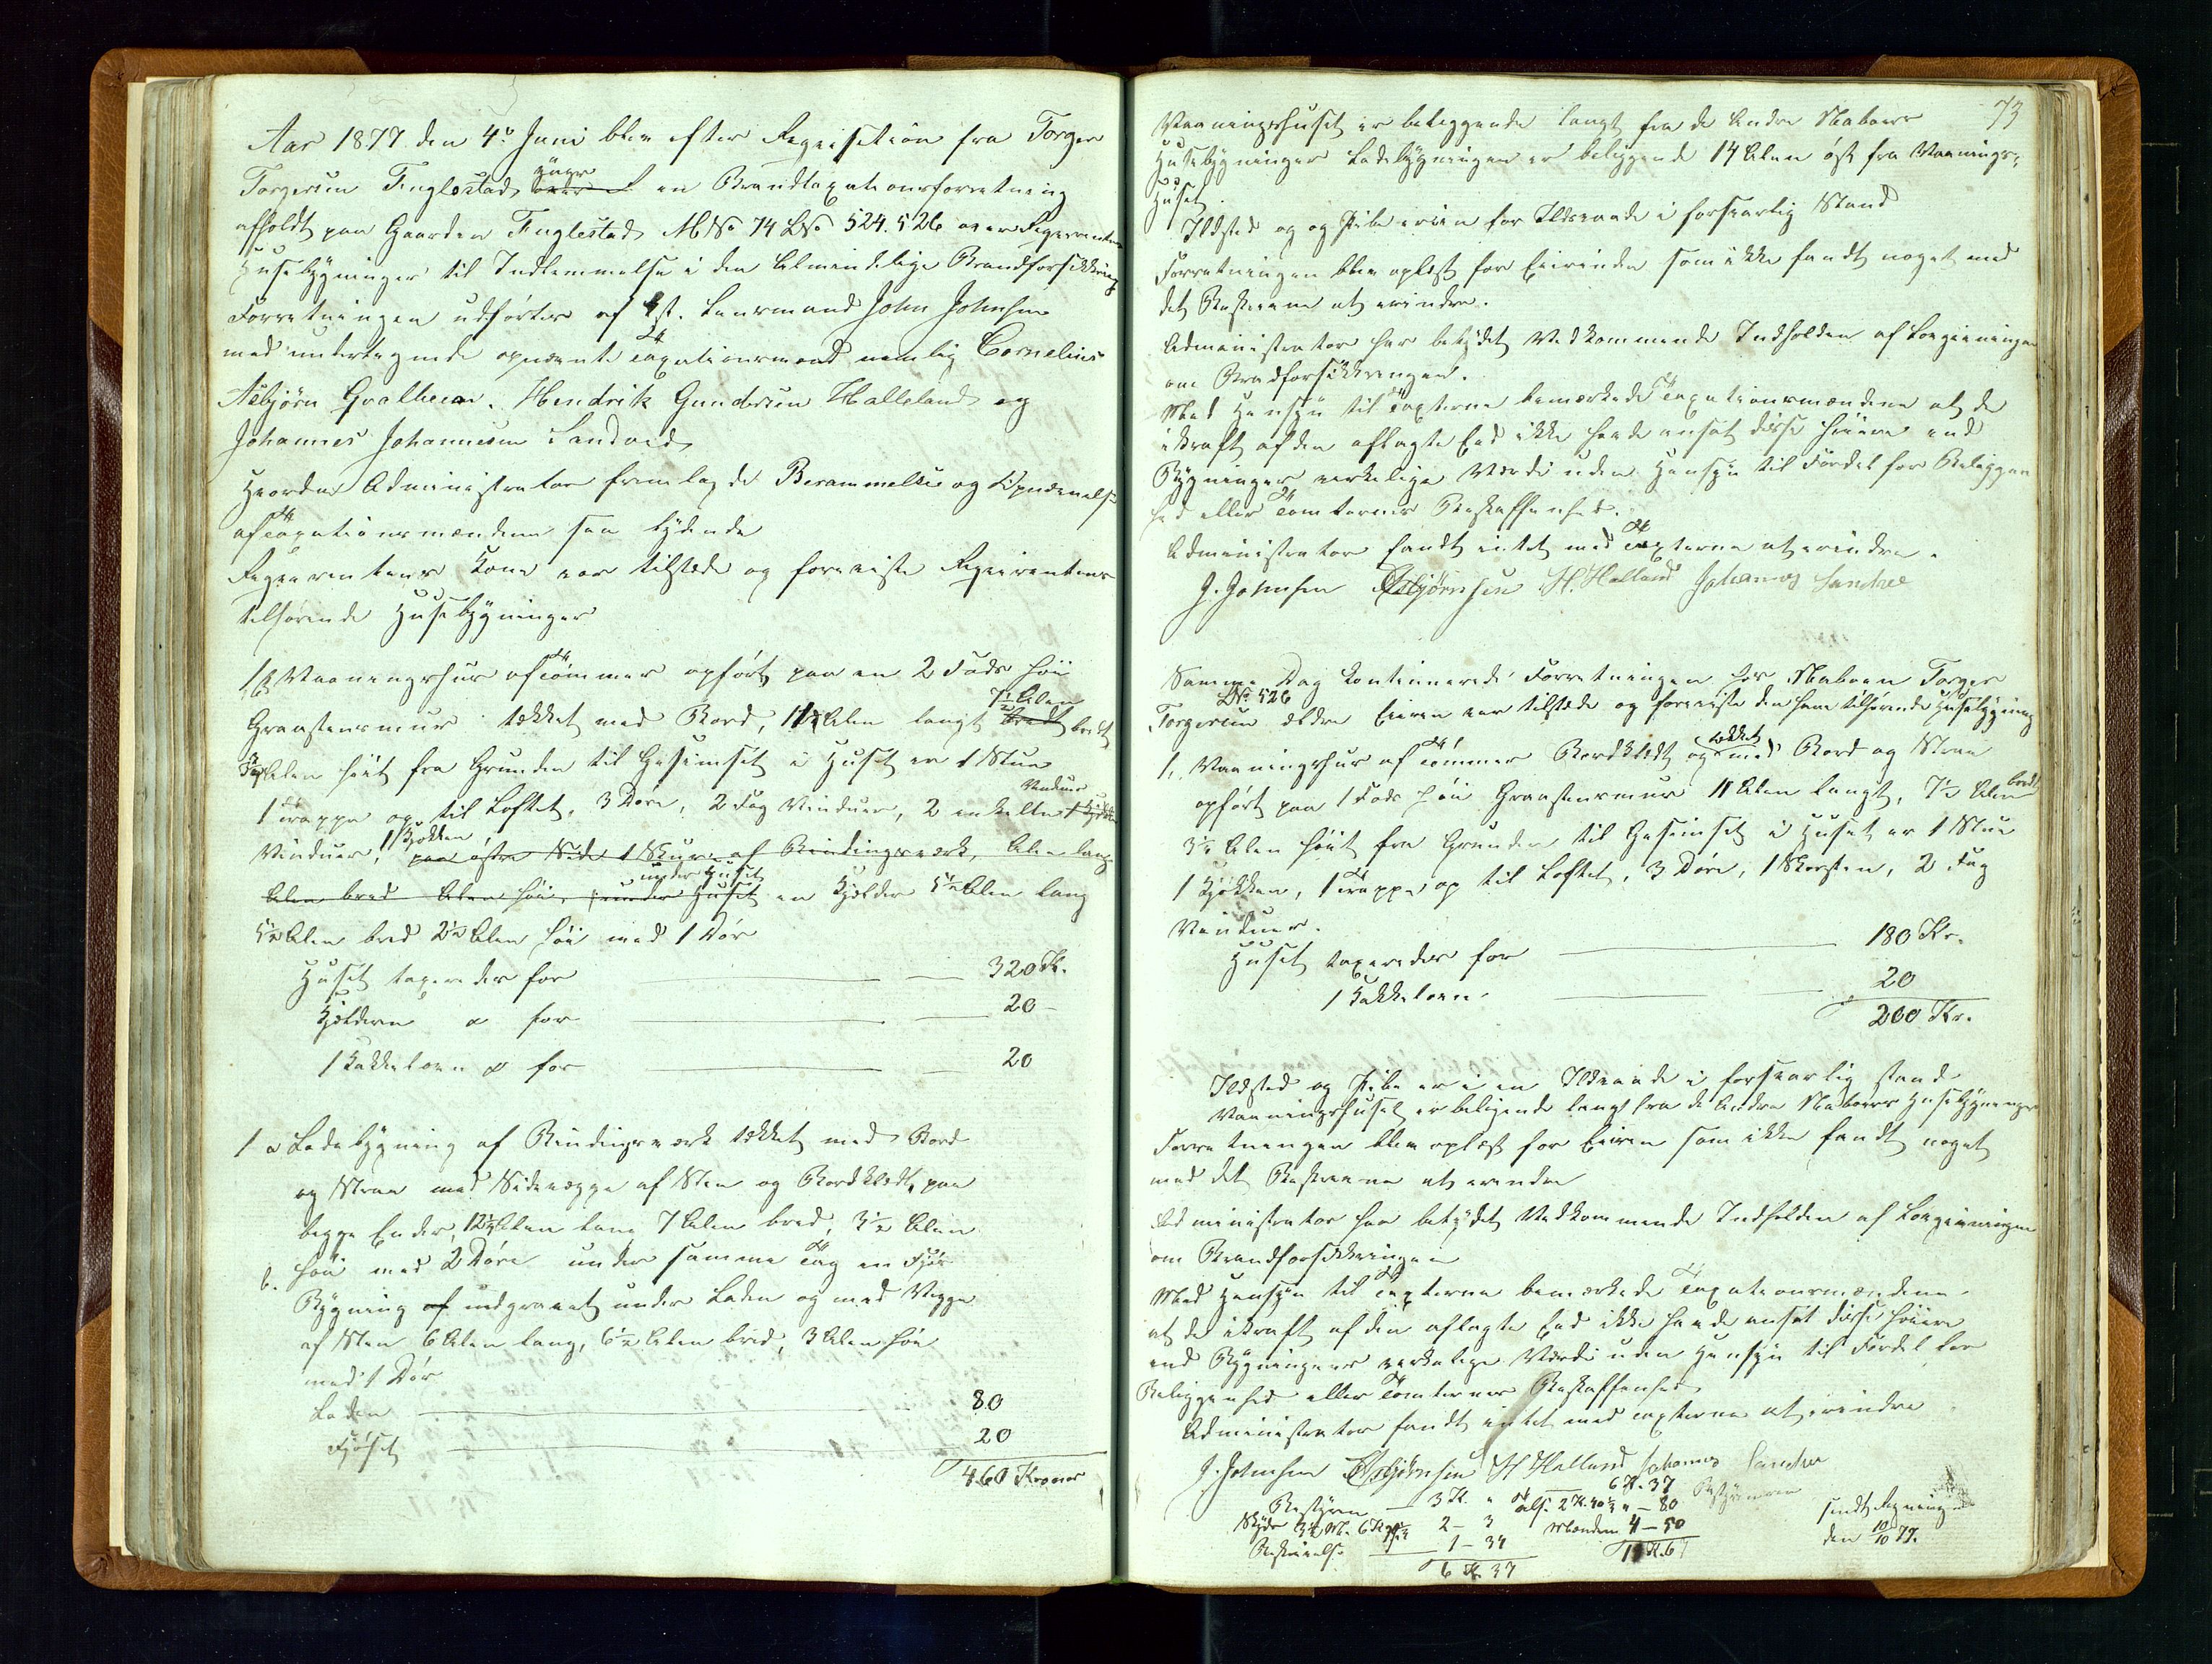 Aar 1877 den 4de Juni blev efter Reqvisition fra Torger
Torgersen Fuglestad yngre en Brandtaxationsforretning
afholdt paa Gaarden Fuglestad M No 74 L No 524. 526 over Reqvirentens
Husebygninger til Indlemmelse i den Almindelige Brandforsikkring
Forretningen udførtes af Lensmand John Johnsen
med undertegnede opnævnte Taxationsmænd nemlig Cornelius
Asbjørn Qvalheim, Hendrik Gundersen Halleland og
Johannes Johannesen Sandved
Hvorda Administrator fremlagde Berammelse og Opnævnelse
af Taxationsmændene saa lydende
Reqvirentens Kone var tilstæde og foreviste Reqvirentens
tilhørende Husebygninger
1 a Vaaningshus af Tømmer opført paa en 2 Fods høi
Graastensmuur tækket med Bord, 11 Alen langt 7½ Alen bredt
Alen høit fra Grunden til Gesimset i Huset er 1 Stue
1 Trappe op til Loftet, 3 Døre, 2 Fag Vinduer, 2 enkelte Vinduer
Vinduer, 1 Kjøkken, paa østre Side 1 Skuur af Bindingsværk, Alen lang
Alen bred Alen høi, under Huset en Kjelder 5½ Alen lang
5½ Alen bred 2½ Alen høi med 1 Dør
Huset taxeredes for 320 Kr.
Kjelderen " for 20 -
1 Kakkelovn " for 20
1 a Ladebygning af Bindingsværk tækket med Bord
og Straa med Sidevægge af Sten og Bordklædt paa
begge Ender, 12½ Alen lang 7 Alen bred, 3½ Alen
b. høi med 2 Døre under samme Tag en Fjøs
Bygning af indgravet under Laden og med Vegge
af Sten 6 Alen lang, 6½ Alen bred, 3 Alen høi
med 1 Dør
Laden 80
Fjøset 20
460 Kroner
73
Vaaningshuset er beliggende langt fra de Andre Naboers
Husebygninger Ladebygningen er beliggende 14 Alen øst fra Vaanings-
Huset.
Ildsted og og Pibe er i en for Ildsvaade i forsvarlig Stand
Forretningen blev oplæst for Eierinden som ikke fandt noget med
det Beskrevne at erindre.
Administrator har betydet Vedkommende Indholden af Lovgivningen
om Brandforsikkringen.
Med Hensyn til Taxterne bemærkede Taxationsmændene at de
i Kraft af den aflagte Eed ikke havde ansat disse høiere end
Bygningers virkelige Værdi uden Hensyn til Fordel for Beliggen
hed eller Tomternes Beskaffenhed.
Administrator fandt intet med Taxterne at erindre.
J. Johnsen Asbjørnsen H. Halland Johannes Sandve
Samme Dag kontinuerede Forretningen hos Naboen Torger
L No 526
Torgersen ældre Eieren var tilstæde og foreviste den ham tilhørende Husebygning
1, Vaaningshus af Tømmer Bordklædt og tækket med Bord og Straa
opført paa 1 Fods høi Graastensmuur 11 Alen langt, 7½ Alen bredt
3½ Alen høit fra Grunden til Gesimset i Huset er 1 Stue
1 Kjøkken, 1 Trappe op til Loftet, 3 Døre, 1 Skorsten, 2 Fag
Vinduer.
Huset taxeredes for 180 Kr.
1 Kakkelovn. 20
200 Kr.
Ildsted og Pibe er i en Ildsvaade i forsvarlig stand
Vaaningshuset er beligende langt fra de Andre Naboers Husebygninger
Forretningen blev oplæst for Eieren som ikke fandt noget
med det Beskrevne at erindre
Administrator har betydet Vedkommende Indholden af Lovgivningen
om Brandforsikkringen
Med Hensyn til Taxterne bemærkede Taxationsmændene
at de i Kraft af den aflagte Eed ikke havde ansat disse høiere
end Bygningens virkelige Værdi uden Hensyn til Fordel for
Beliggenhed eller Tomternes Beskaffenhed
Administrator fandt intet med Taxterne at erindre
J. Johnsen Asbjørnsen H Halland Johannes Sandve
6 Kr. 37
Bestyren 3 Kr. "
Skyds 3½ M. 2 - 3 Mændene 4 - 50
Beskrivelse 1 - 34
6 Kr. 37
sendt Regning
den 10/10 77.